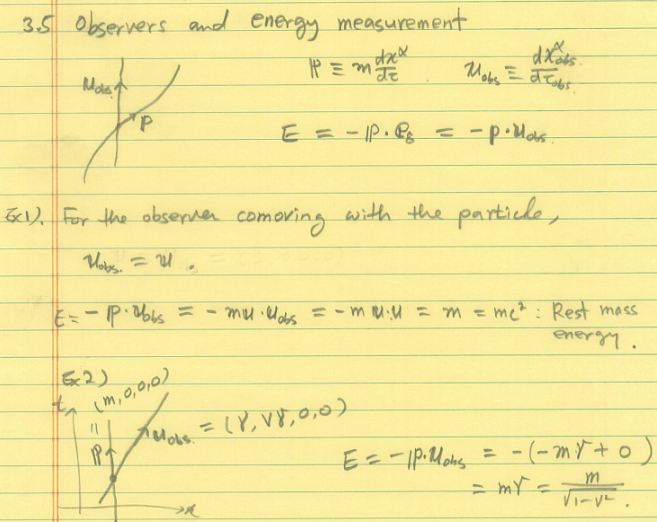 3.5 Observers and energy measurement
ℙ ≡ m dx^α/dτ   𝕦obs ≡ dx^α obs/dτobs
𝕦obs.
ℙ
E = -ℙ·e₀ = -ℙ·𝕦obs.
Ex1). For the observer comoving with the particle,
𝕦obs. = 𝕦.
E = -ℙ·𝕦obs = -m𝕦·𝕦obs = -m𝕦·𝕦 = m = mc² : Rest mass
energy.
Ex2)
(m,0,0,0)
t
||
ℙ
𝕦obs = (γ, Vγ, 0, 0)
E = -ℙ·𝕦obs = -(-mγ + 0)
= mγ = m/√(1-V²).
x